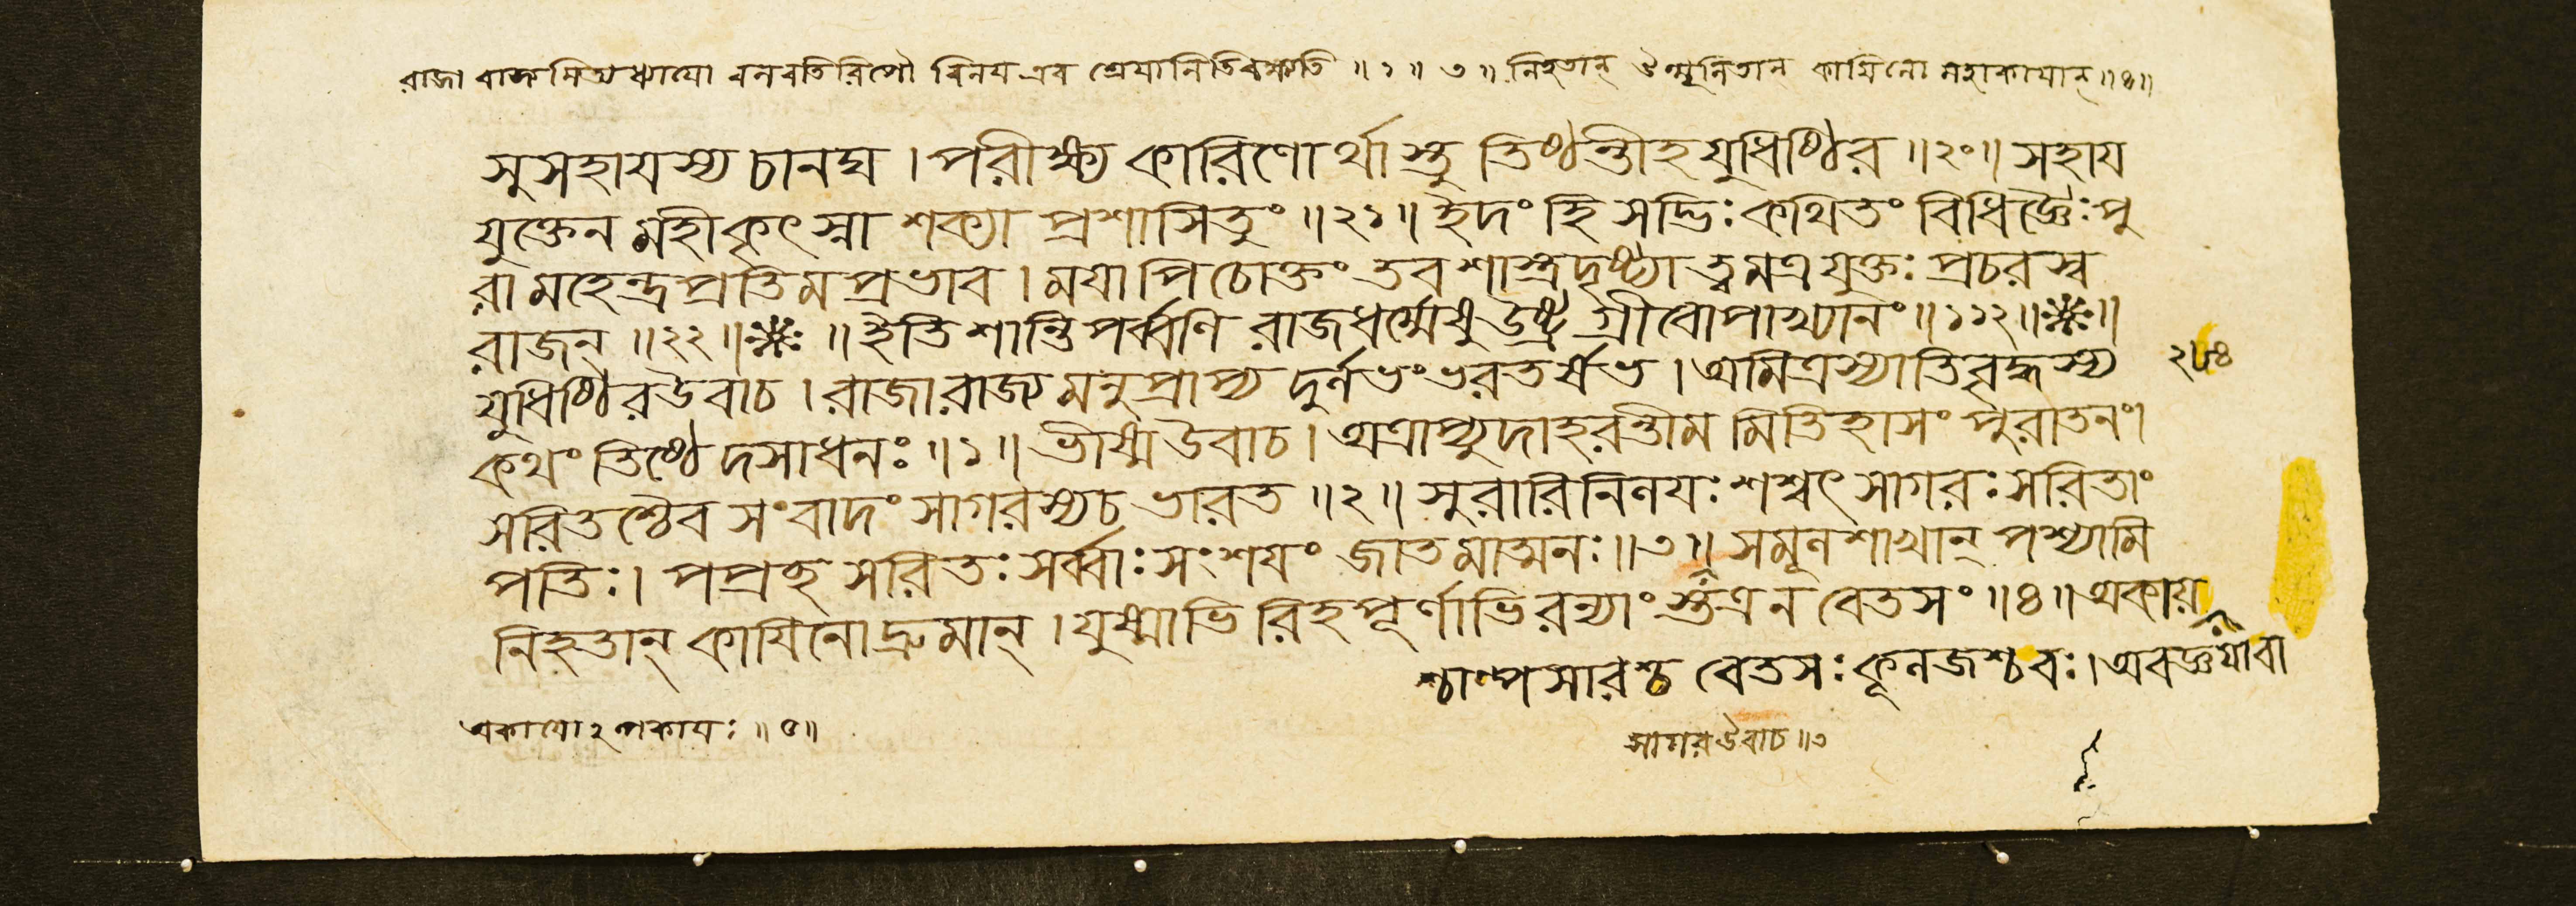 রাজা রাজ্যমিত্যধ্যাযো বলবতি রিপৌ বিনয এব শ্রেযানিতি বক্ষ্যতি ॥১॥ ৩॥ নিহতান্ উন্মূলিতান্ কাযিনো মহাকাযান্ ॥৪॥
সুসহাযস্য চানঘ । পরীক্ষ্য কারিণোর্থাস্তু তিষ্ঠন্তীহ যুধিষ্ঠির ॥২০॥ সহায
যুক্তেন মহীকৃৎস্না শক্যা প্রশাসিতুং ॥২১॥ ইদং হি সদ্ভিঃ কথিতং বিধিজ্ঞৈঃ পু
রা মহেন্দ্রপ্রতিমপ্রভাব । মযাপি চোক্তং তব শাস্ত্রদৃষ্ট্যা ত্বমত্র যুক্তঃ প্রচরস্ব
রাজন্ ॥২২॥ ॥ ইতি শান্তিপর্ব্বণি রাজধর্ম্মেষু উষ্ট্রগ্রীবোপাখ্যানং ॥১১২॥ ॥
যুধিষ্ঠির উবাচ । রাজা রাজ্যমনুপ্রাপ্য দুর্লভং ভরতর্ষভ । অমিত্রস্যাতিবৃদ্ধস্য
কথং তিষ্ঠেদসাধনঃ ॥১॥ ভীষ্ম উবাচ । অত্রাপ্যুদাহরন্তীমমিতিহাসং পুরাতনং।
সরিতশ্চৈব সংবাদং সাগরস্য চ ভারত ॥২॥ সুরারিনিলযঃ শশ্বৎ সাগরঃ সরিতাং
পতিঃ । পপ্রচ্ছ সরিতঃ সর্ব্বাঃ সংশযং জাতমাত্মনঃ ॥৩॥ সমূলশাখান্ পশ্যামি
নিহতান্ কাযিনো দ্রুমান্ । যুষ্মাভিরিহ পূর্ণাভিরন্যাংস্তত্র ন বেতসং ॥৪॥ অকায়
শ্চাল্পসারশ্চ বেতসঃ কূলজশ্চ বঃ । অবজ্ঞযা বা
অকাযোঽল্পকাযঃ ॥৫॥
সাগর উবাচ ॥৩